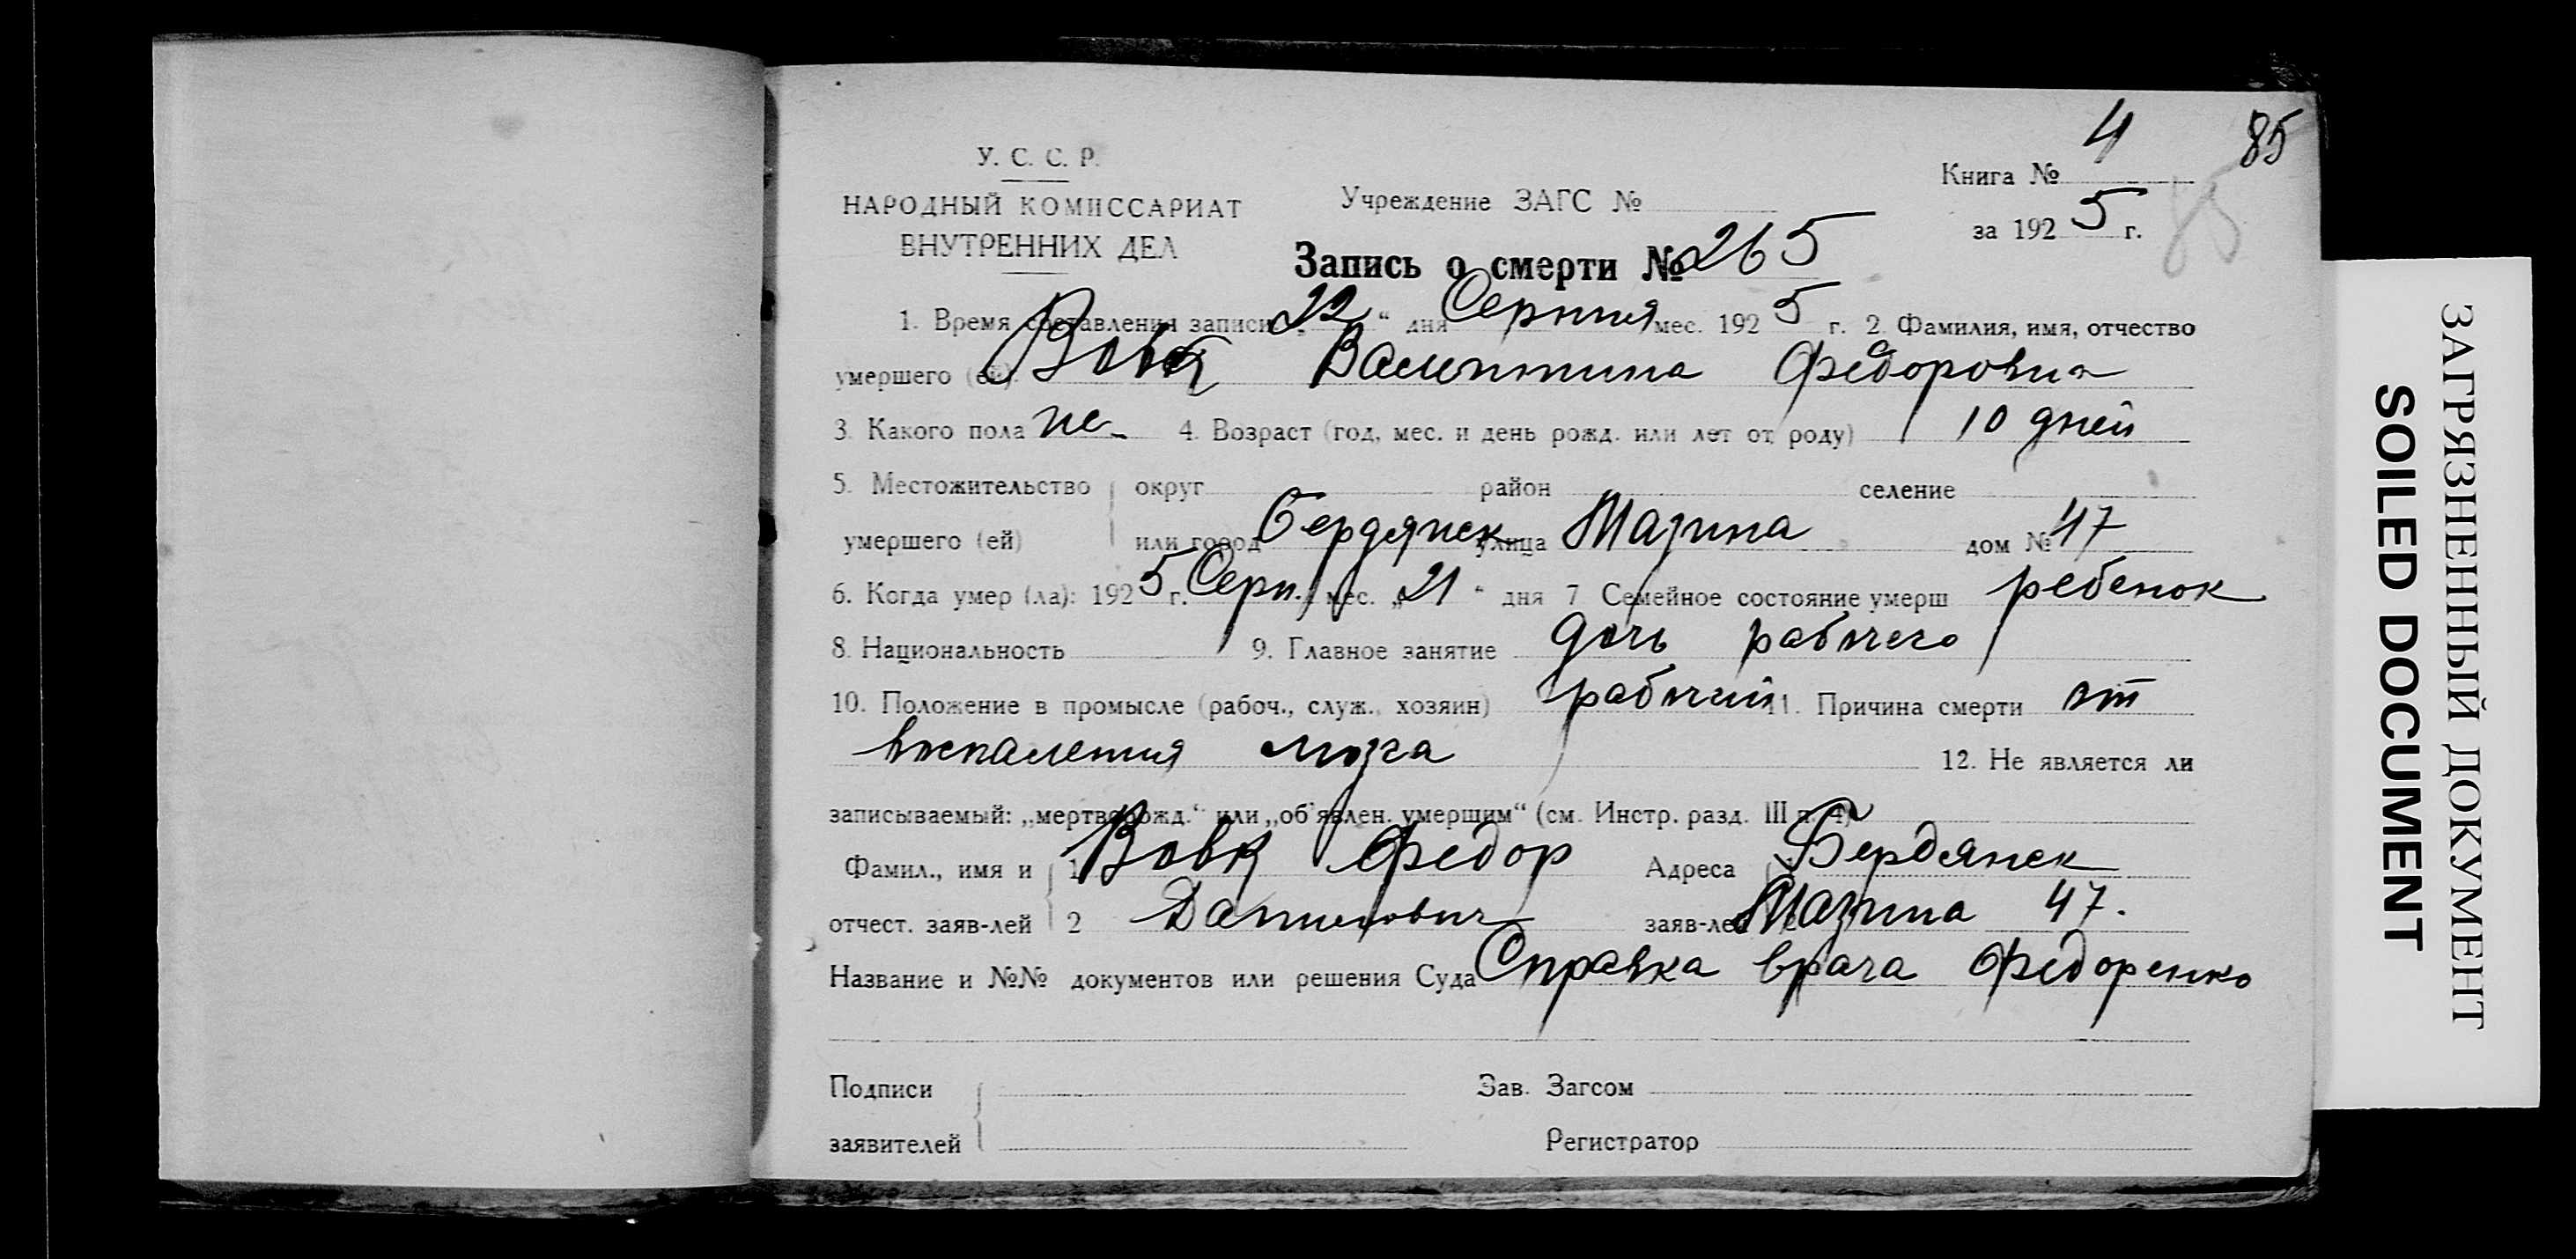 4
85
У. С. С. Р.
Книга №
85
НАРОДНЫЙ КОМИССАРИАТ
ВНУТРЕННИХ ДЕЛ
Учреждение ЗАГС №
за 1925 г.
Запись о смерти № 265
1. Время составления записи „22“ дня Серпня мес. 1925 г. 2. Фамилия, имя, отчество
умершего (ей) Вовк Валентина Федоровна
3. Какого пола 4. Возраст (год, мес. и день рожд. или лет от роду) 10 дней
5. Местожительство округ район селение
умершего (ей) или город Бердянск улица Мазина дом № 47
6. Когда умер (ла): 1925 г. Серп. мес. „21“ дня 7 Семейное состояние умерш ребенок
8. Национальность 9. Главное занятие дочь рабочего
10. Положение в промысле (рабоч., служ., хозяин) рабочий 11. Причина смерти от
воспаления мозга 12. Не является ли
записываемый: „мертворожд.“ или „об'явлен. умершим“ (см. Инстр. разд. III п. 4)
Фамил., имя и 1 Вовк Федор Адреса Бердянск
отчест. заяв-лей 2 Данилович заяв-лей Мазина 47.
Название и №№ документов или решения Суда Справка врача Федоренко
Подписи
Зав. Загсом
заявителей
Регистратор
ЗАГРЯЗНЕННЫЙ ДОКУМЕНТ
SOILED DOCUMENT